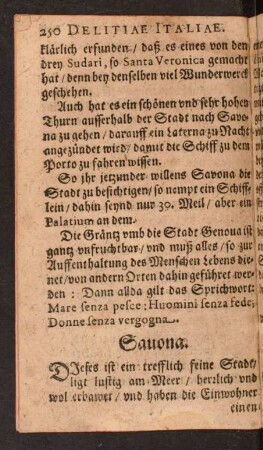 250 DELITIAE ITALIAE.
klärlich erfunden/ daß es eines von den
drey Sudari, so Santa Veronica gemacht
hat/ denn bey denselben viel Wunderwerck
geschehen.
Auch hat es ein schönen vnd sehr hohen
Thurn ausserhalb der Stadt nach Savo-
na zu gehen/ darauff ein Laterna zu Nacht
angezündet wird/ damit die Schiff zu dem
Porto zu fahren wissen.
So jhr jetzunder willens Savona die
Stadt zu besichtigen/ so nempt ein Schiff-
lein/ dahin seynd nur 30. Meil/ aber ein
Palatium an dem.
Die Gräntz vmb die Stadt Genoua ist
gantz vnfruchtbar/ vnd muß alles/ so zur
Auffenthaltung des Menschen Lebens die-
net/ von andern Orten dahin geführet wer-
den: Dann allda gilt das Sprichwort:
Mare senza pesce; Huomini senza fede;
Donne senza vergogna.
Sauona.
DJeses ist ein trefflich feine Stadt/
ligt lustig am Meer/ herzlich vnd
wol erbawet/ vnd haben die Einwohner
einen